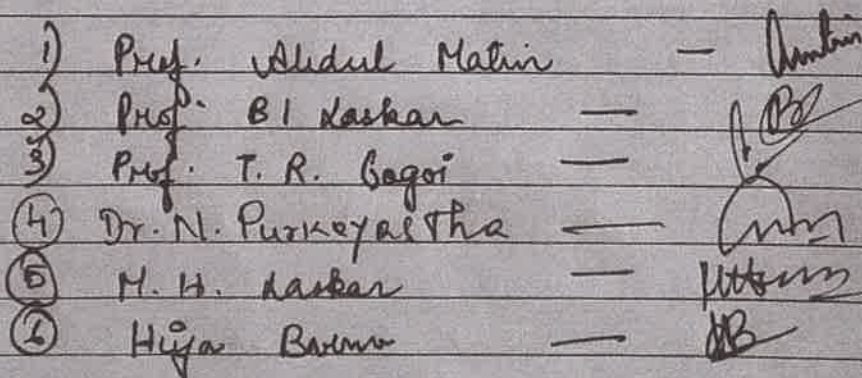 1) Prof. Abdul Matin —
2) Prof. B I Laskar —
3) Prof. T. R. Gogoi —
4 Dr. N. Purkayastha —
5 M. H. Laskar —
6 Hija —